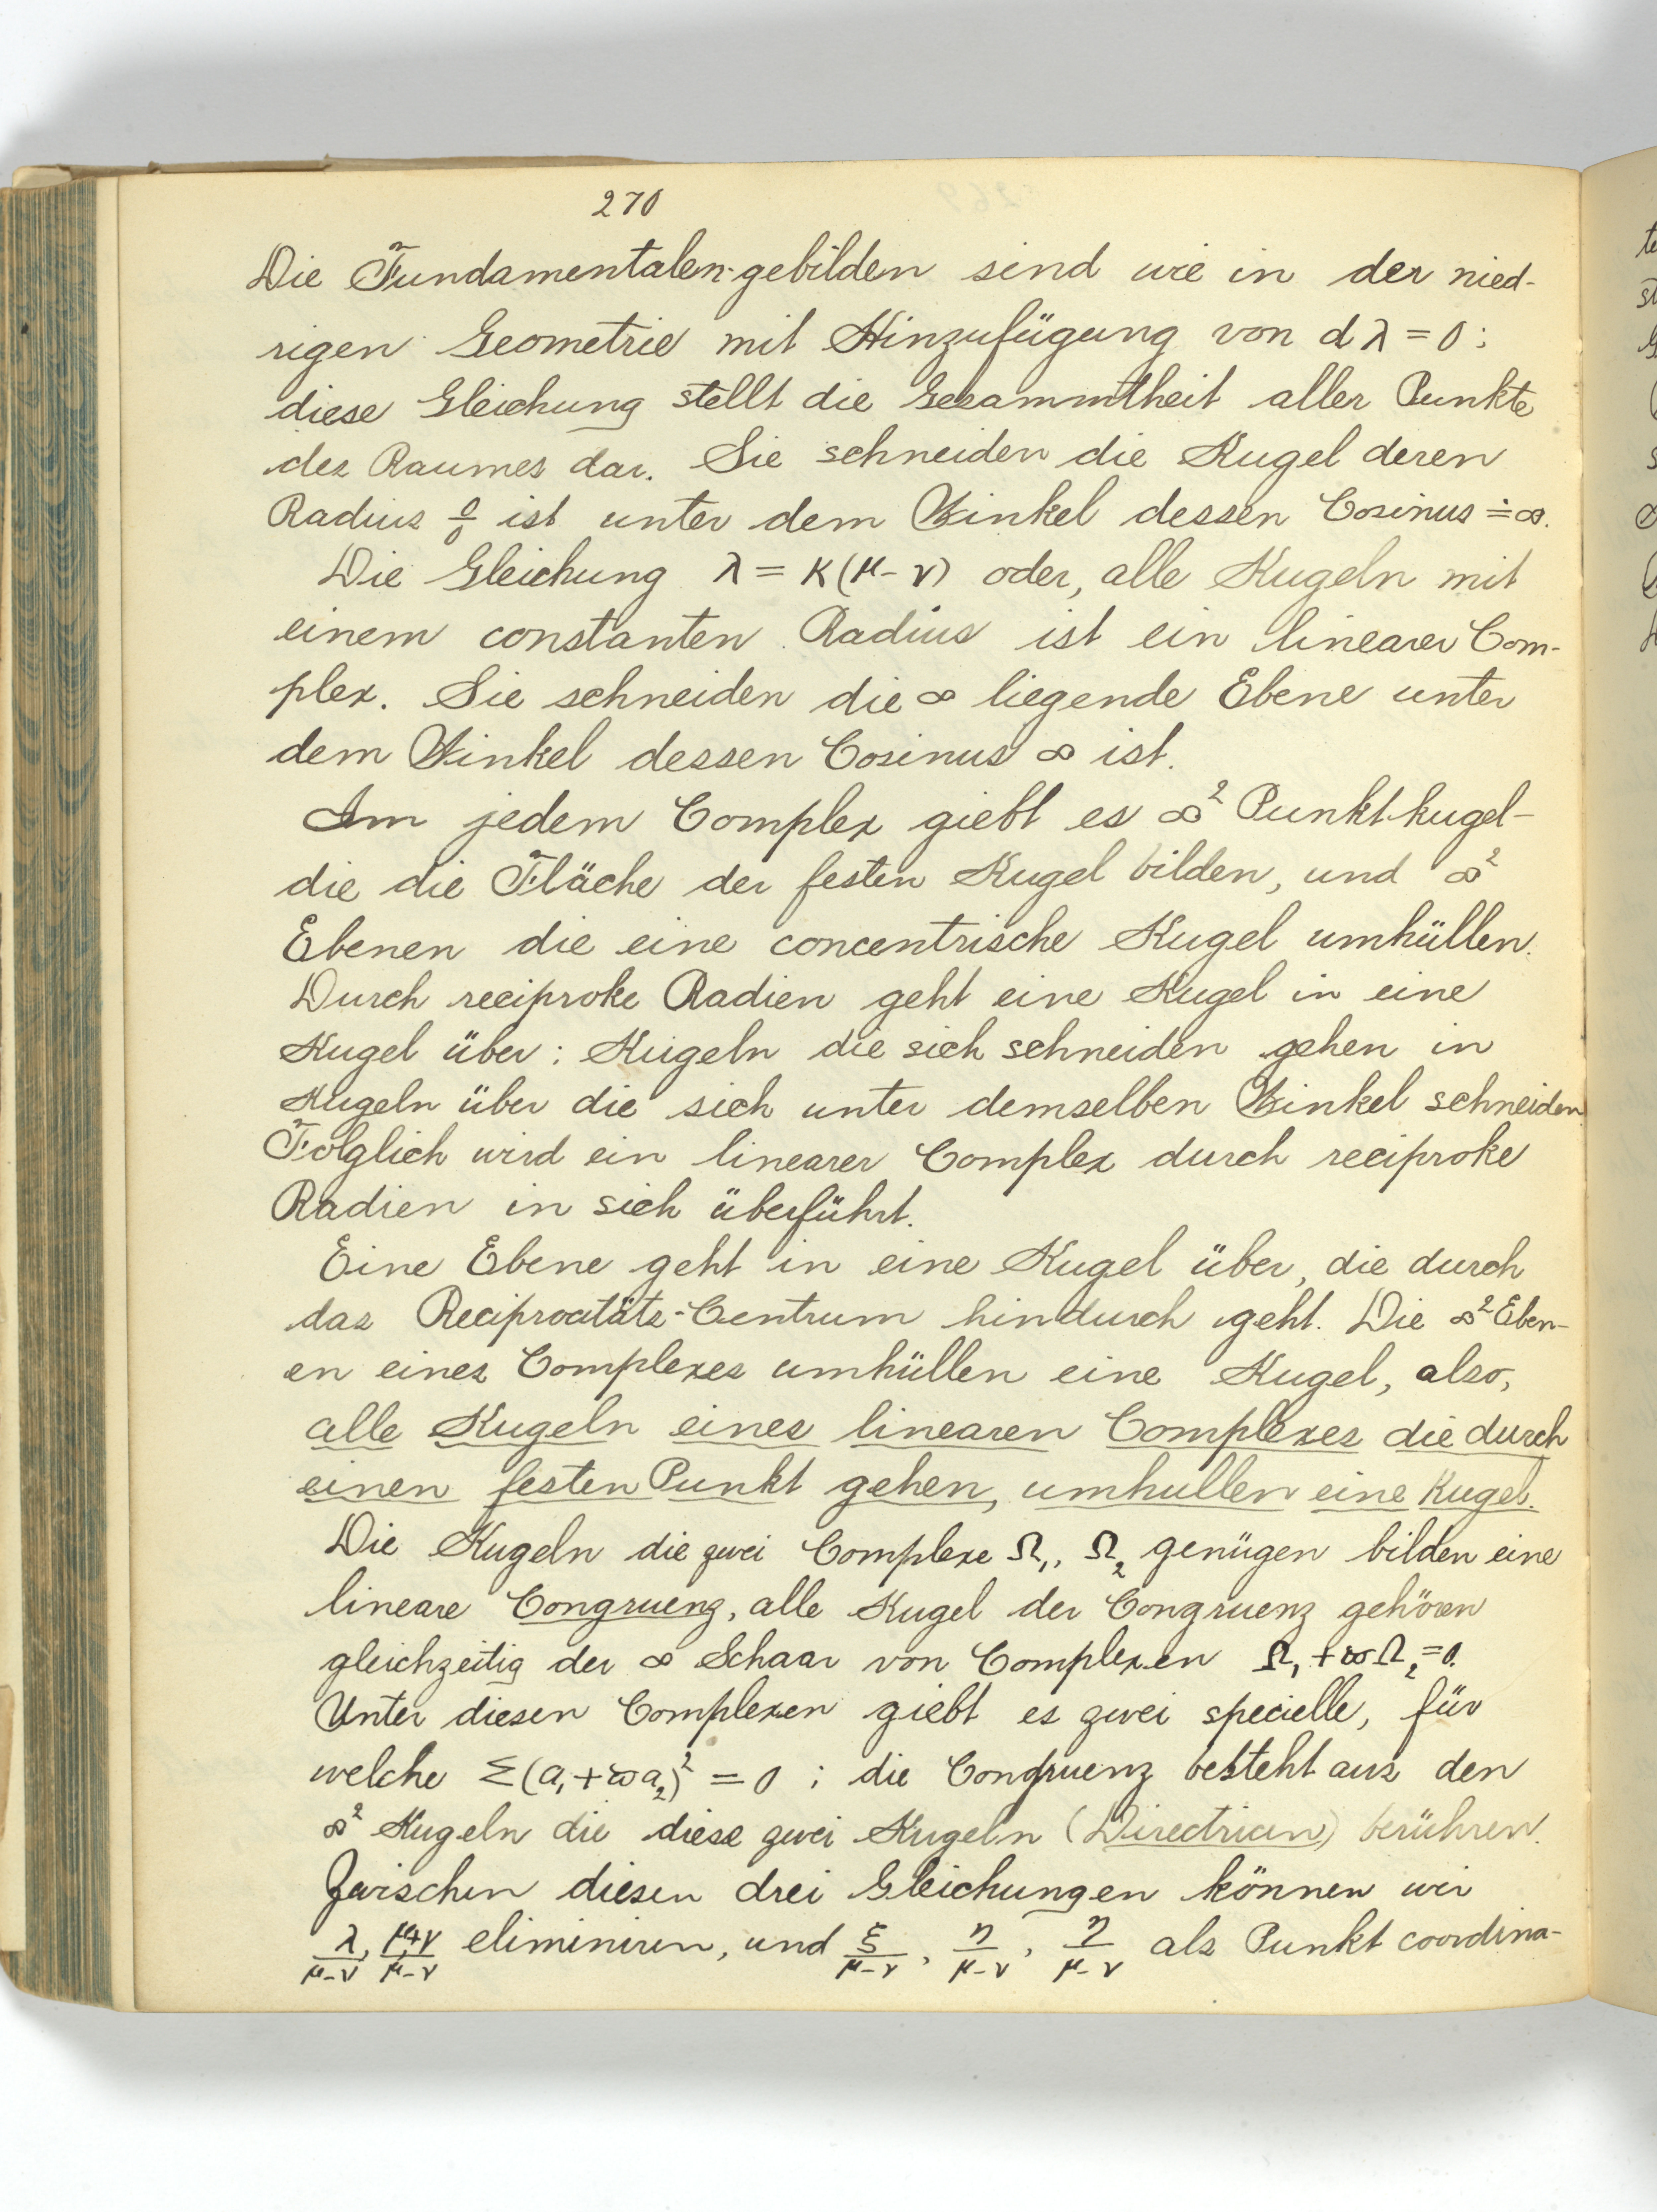 270
Die Fundamentalen-gebilden sind wie in der nied-
rigen Geometrie mit Hinzufügung von dλ = 0:
diese Gleichung stellt die Gesammtheit aller Punkte
des Raumes dar. Sie schneiden die Kugel deren
Radius 0/0 ist unter dem Winkel dessen Cosinus = ∞.
Die Gleichung λ = K(μ-ν) oder, alle Kugeln mit
einem constanten Radius ist ein linearer Com-
plex. Sie schneiden die ∞ liegende Ebene unter
dem Winkel dessen Cosinus ∞ ist.
Im jedem Complex giebt es ∞² Punkt-kugel-
die die Fläche der festen Kugel bilden, und ∞²
Ebenen die eine concentrische Kugel umhüllen.
Durch reciproke Radien geht eine Kugel in eine
Kugel über: Kugeln die sich schneiden gehen in
Kugeln über die sich unter demselben Winkel schneiden.
Folglich wird ein linearer Complex durch reciproke
Radien in sich überführt.
Eine Ebene geht in eine Kugel über, die durch
das Reciprocitäts-Centrum hindurch geht. Die ∞² Eben-
en eines Complexes umhüllen eine Kugel, also,
alle Kugeln eines linearen Complexes die durch
einen festen Punkt gehen, umhullen eine Kugel.
Die Kugeln die zwei Complexe Ω₁, Ω₂ genügen bilden eine
lineare Congruenz, alle Kugel der Congruenz gehören
gleichzeitig der ∞ Schaar von Complexen Ω₁ + ϖΩ₂ = 0.
Unter diesen Complexen giebt es zwei specielle, für
welche Σ(a₁+ϖa₂)² = 0 ; die Congruenz besteht aus den
∞² Kugeln die diese zwei Kugeln (Directricen) berühren.
Zwischen diesen drei Gleichungen können wir
λ/μ-ν, μ+ν/μ-ν eliminiren, und ξ/μ-ν, η/μ-ν, η/μ-ν als Punkt coordina-